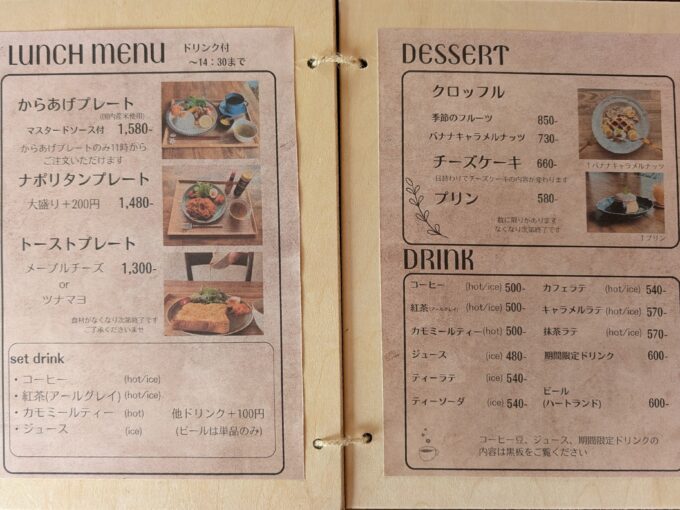 LUNCH MENU ドリンク付
～14：30まで
からあげプレート
(国内産米使用)
マスタードソース付 1,580-
からあげプレートのみ11時から
ご注文いただけます
ナポリタンプレート
大盛り＋200円 1,480-
トーストプレート
メープルチーズ 1,300-
or
ツナマヨ
食材がなくなり次第終了です
ご了承くださいませ
set drink
・コーヒー (hot/ice)
・紅茶(アールグレイ) (hot/ice)
・カモミールティー (hot) 他ドリンク＋100円
・ジュース (ice) (ビールは単品のみ)
DESSERT
クロッフル
季節のフルーツ 850-
バナナキャラメルナッツ 730-
↑バナナキャラメルナッツ
チーズケーキ 660-
日替わりでチーズケーキの内容が変わります
プリン 580-
数に限りがあります
なくなり次第終了です
↑プリン
DRINK
コーヒー (hot/ice) 500- カフェラテ (hot/ice) 540-
紅茶(アールグレイ) (hot/ice) 500- キャラメルラテ (hot/ice) 570-
カモミールティー(hot) 500- 抹茶ラテ (hot/ice) 570-
ジュース (ice) 480- 期間限定ドリンク 600-
ティーラテ (ice) 540-
ティーソーダ (ice) 540- ビール
(ハートランド) 600-
コーヒー豆、ジュース、期間限定ドリンクの
内容は黒板をご覧ください